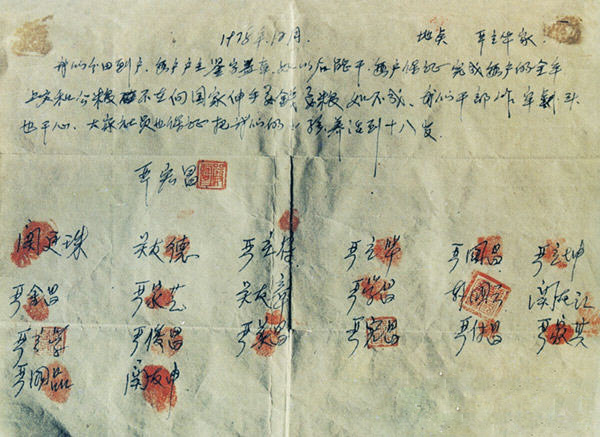 1978年12月. 地点 严立华家.
我们分田到户.每户户主签字盖章.如以后能干.每户保证完成每户的全年
上交和公粮.不在向国家伸手要钱要粮.如不成.我们干部作牢刹头
也干心.大家社员也保证把我们的小孩养活到十八岁.
严宏昌
关廷珠 关友德 严立符 严立华 严国昌 严立坤
严金昌 严家芝 关友章 严学昌 韩国云 关友江
严立学 严俊昌 严美昌 严宏昌 严付昌 严家其
严国品 关友申